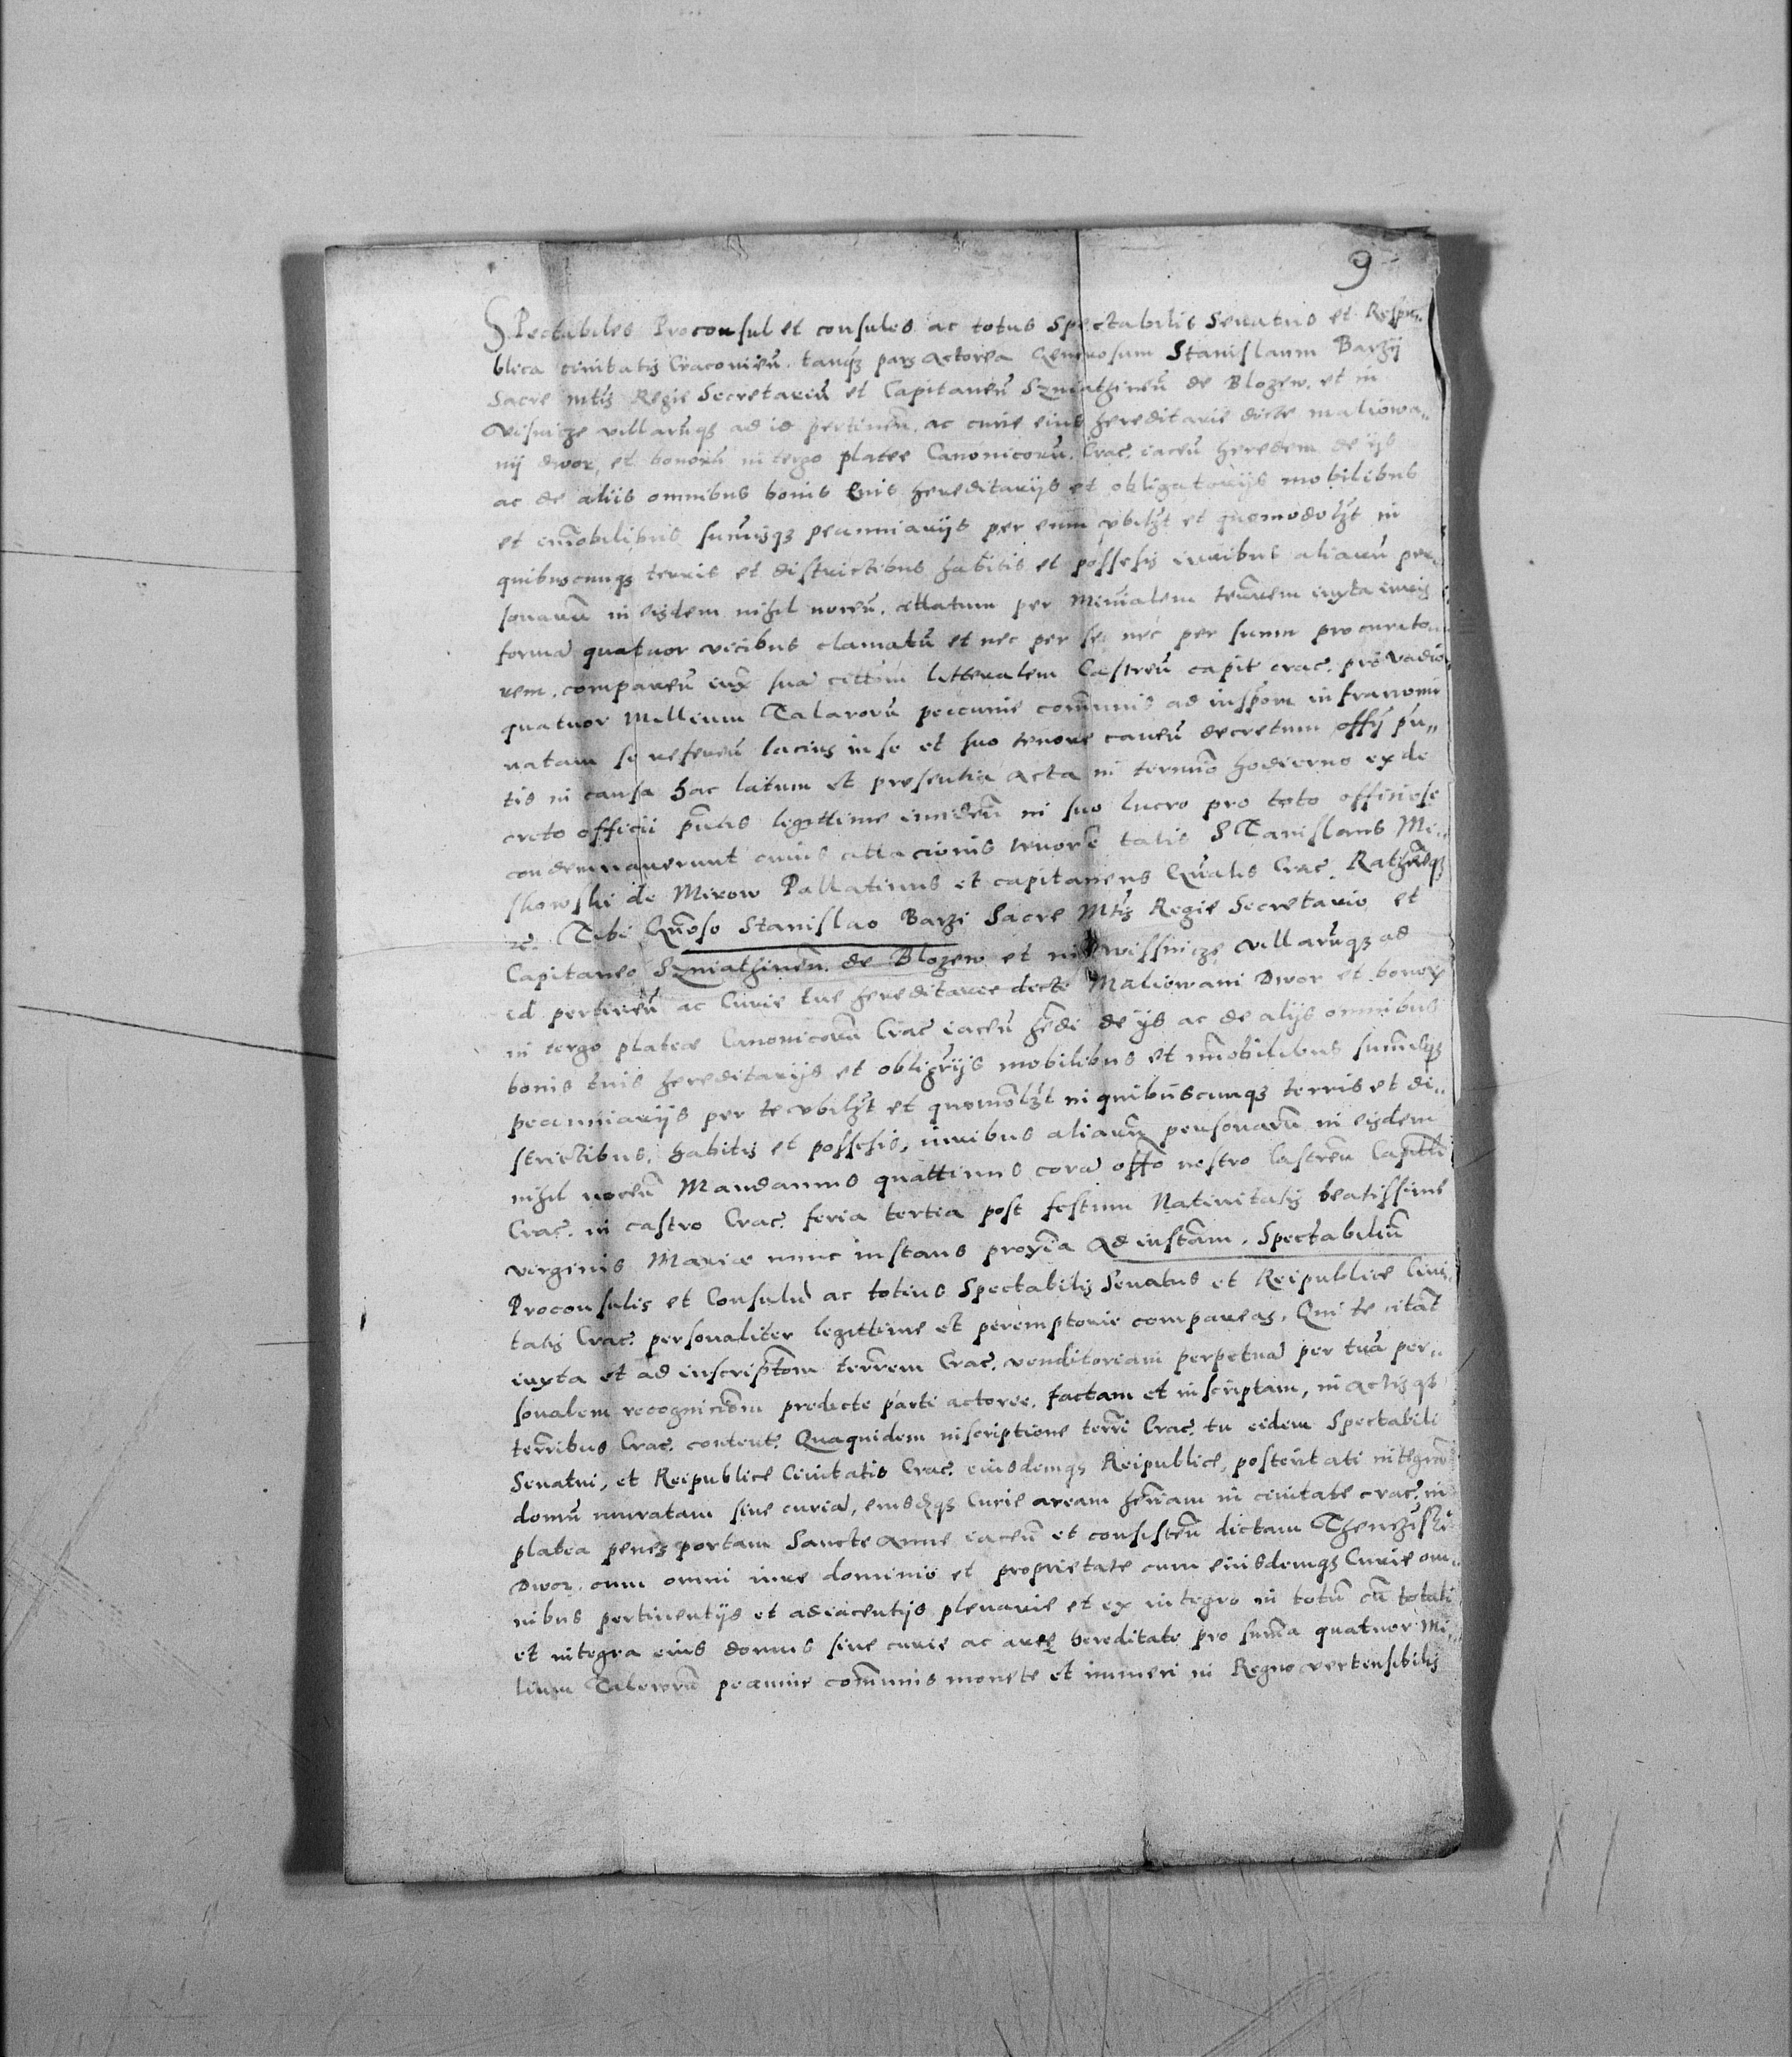 9
SPectabiles Proconsul et consules ac totus Spectabilis Senatus et Respu„
blica civitatis Cracovieñ. tanqz pars actorea Generosum Stanislaum Barzij
Sacre mtis Regie Secretariũ et Capitaneũ Szniathineñ de Blozew. et in
Visnicze villarũqz ad id pertineñ. ac curie eius hereditarie dicte maliowa„
nij dwor, et bonorũ in tergo platee Canonicorũ. Crac. iaceñ heredem de ijs
ac de aliis omnibus bonis suis hereditarijs et obligatorijs mobilibus
et im̃obilibus sum̃isqz pecuniarijs per eum vbilzt et quomodolzt in
quibuscunqz terris et districtibus habitis et possesis iuribus aliarũ per„
sonarũ in eisdem nihil noceñ. citatum per Miñialem terr̃rem iuxta iuris
formã quatuor vicibus clamatũ et nec per se nec per suum procurato„
rem. compareñ iux̃ suã cittõm litteralem Castreñ capit crac. pro vadio
quatuor Millium Talarorũ peccunie com̃unis ad inscp̃om infranomi„
natam se refereñ lacius in se et suo tenore caneñ decretum offij pñ„
tis in causa hac latum et presentia acta in termĩo hodierno ex de
creto officii pñtis legittime euideñ in suo lucro pro toto officiose
condemnaverunt cuius citacionis tenor ẽ talis STanislaus Mi„
skowski de Mirow Pallatinus et capitaneus Gñalis Crac. Ratỹñeqz
zc. Tibi Gñoso Stanislao Barzi Sacre Mtis Regie Secretario et
Capitaneo Szniathineñ. de Blozew et in Wissnicze villarũqz ad
id pertineñ ac Curie tue hereditarie dicte Maliowani Dwor et bonorz
in tergo plateæ Canonicorũ Crac iaceñ hẽdi de ijs ac de alijs omnibus
bonis tuis hereditarijs et obligr̃ijs mobilibus et im̃obilibus sum̃isqz
pecuniarijs per te vbilzt et quomõlzt in quibuscunqz terris et di„
strictibus. habitis et possesis, iuribus aliarũ personarũ in eisdem
nihil noceñ Mandamus quattinus corã offo nostro Castreñ Capitli
Crac. in castro Crac. feria tertia post festum Natiuitatis beatissime
virginis Mariæ nunc instans proxĩa ad instam̃. Spectabiliũ
Proconsulis et Consulũ ac totius Spectabilis Senatus et Reipublice Ciui„
tatis Crac. personaliter legittime et peremptorie compareas. Qui te citãt
iuxta et ad inscriptõm terr̃rem Crac. venditoriam perpetuã per tuã per„
sonalem recognicõm predicte parti actoree. factam et inscriptam, in actis qz
terr̃ribus Crac. content. Quaquidem inscriptione terr̃ri Crac. tu eidem Spectabili
Senatui, et Reipublice Ciuitatis Crac. eiusdemqz Reipublice, posteritati integrã
domũ muratam siue curiã, eiusdqz Curie aream hẽriam in ciuitate crac. in
platea penes portam Sancte Anne iaceñ et consisteñ dictam Thenczis̃ki
Dwor. cum omni iure dominio et proprietate cum eiusdemqz Curie om„
nibus pertinentijs et adiacentijs plenarie et ex integro in totũ cũ totali
et integra eius domus siue curie ac aree hereditate pro sum̃a quatuor Mi„
lium Talerorũ pecunie com̃unis monete et numeri in Regno vertensibilis